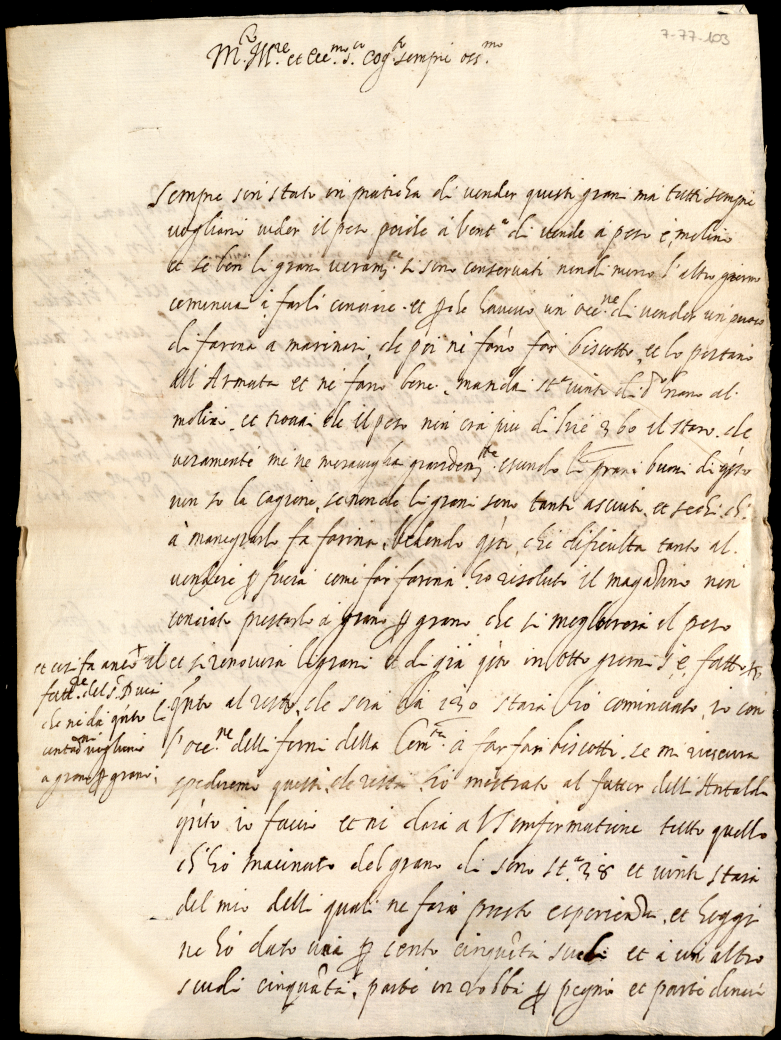 7-77-103
M.co Ill.re et Ecc.mo s.r Cog.to sempre oss.mo
Sempre son stato in praticha di vender questi grani ma tutti sempre
vogliano veder il peso perche a di vende a peso e, molino
et se ben li grani veram.te si sono conservati nondimeno l'altro giorno
cominciai a farli conciare. et p che havevo un occ.ne di vender un
di farina a marinari, che poi ne fano far biscotto, et lo portano
all'Armata et ne fano bene, mandai st.a vinti di d.o grano al
molino, et trovai che il peso non era piu di lire il staro. che
veramente me ne meraviglia grandem.te essendo li grani buoni di q.sto
non so la cagione, se non che li grani sono tanti asciuti, et sechi ch'
a manegiarlo fa farina, Vedendo q.sti, che dificulta tanto al
vendere p fuera come far farina. ho resoluto il magazino non
conciato prestarlo a grano p grano che si megliorera il peso
et si renovera li grani et di gia q.sto in otto giorni s'è fatto
q.nto al resto, che sera da 130 stara ho cominciato, io con
l'occ.ne delli forni della Com.ta a far far biscotti. se mi riescira
spediremo questi che resta ho mostrato al fattor dell'Antaldi
q.nto io faccio et ne dara a VS informatione tutto quello
ch'ho macinato del grano di sono st.a 38 et vinti stara
del mio delli quali ne faro presto esperienza, et hoggi
ne ho dato una p cento cinquāta scudi et a un altro
scudi cinquāta, parte in robba p pegno et parte denari
et cosi fa anco il
fatt.re del s.r Duca
che ne dà q.nto li
contadini vogliono
a grano p grano.